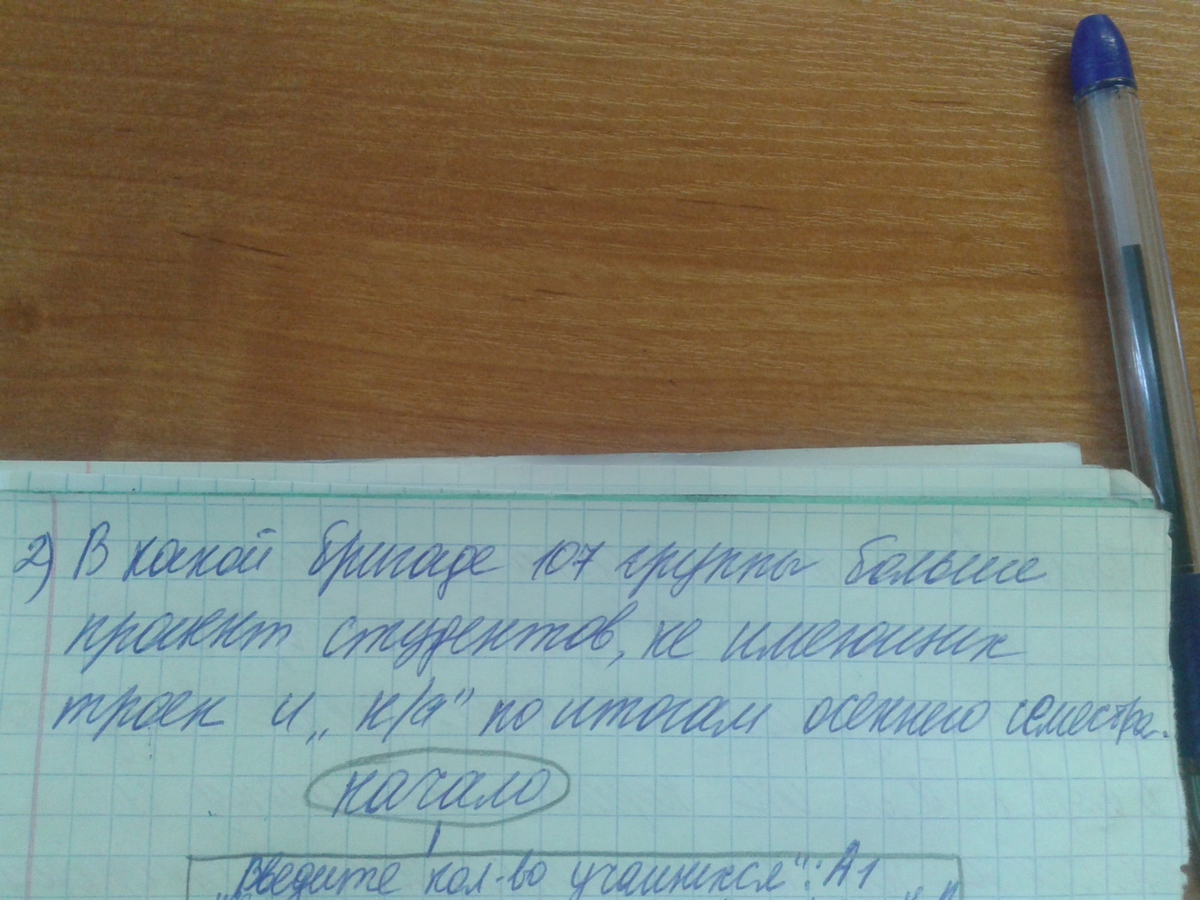 2) В какой бригаде 107 группы больше
процент студентов, не имеющих
троек и „ н/а" по итогам осеннего семестра.
начало
„Введите кол-во учащихся": А1